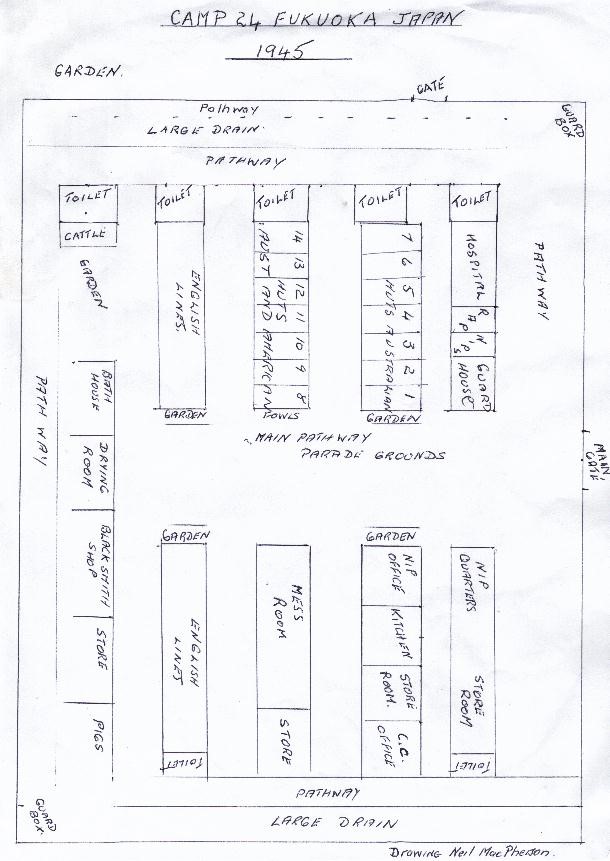 CAMP 24 FUKUOKA JAPAN
1945
GARDEN.
GATE
GUARD BOX
Pathway
LARGE DRAIN.
PATHWAY
TOILET
TOILET
TOILET
TOILET
TOILET
CATTLE
GARDEN
ENGLISH LINES.
14 13 12 11 10 9 8
AUST AND AMARICAN
HUTS
7 6 5 4 3 2 1
HUTS AUSTRALIAN
HOSPITAL
NIPS
GUARD HOUSE
PATHWAY
PATHWAY
BATH HOUSE
GARDEN
FOWLS
GARDEN
MAIN PATHWAY
PARADE GROUNDS
MAIN GATE
DRYING ROOM
BLACK SMITH SHOP
STORE
PIGS
GARDEN
GARDEN
ENGLISH LINES
TOILET
MESS ROOM
STORE
NIP OFFICE
KITCHEN
STORE ROOM.
C.C. OFFICE
NIP QUARTERS
STORE ROOM
TOILET
PATHWAY
GUARD BOX.
LARGE DRAIN
Drawing Neil MacPherson.